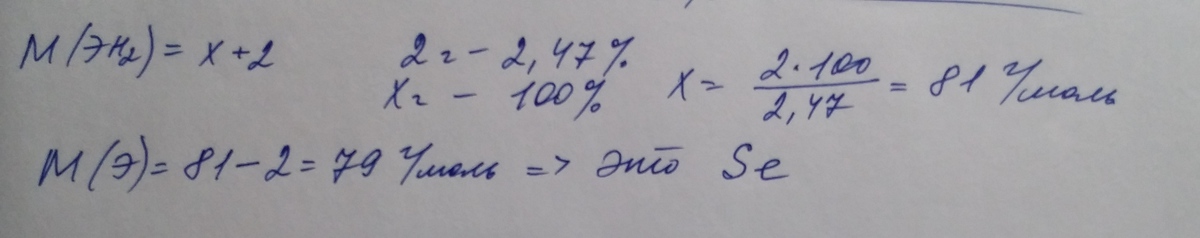 M(ЭH₂) = x+2 2г – 2,47%
xг – 100% x = 2·100/2,47 = 81 г/моль
M(Э) = 81-2 = 79 г/моль => это Se